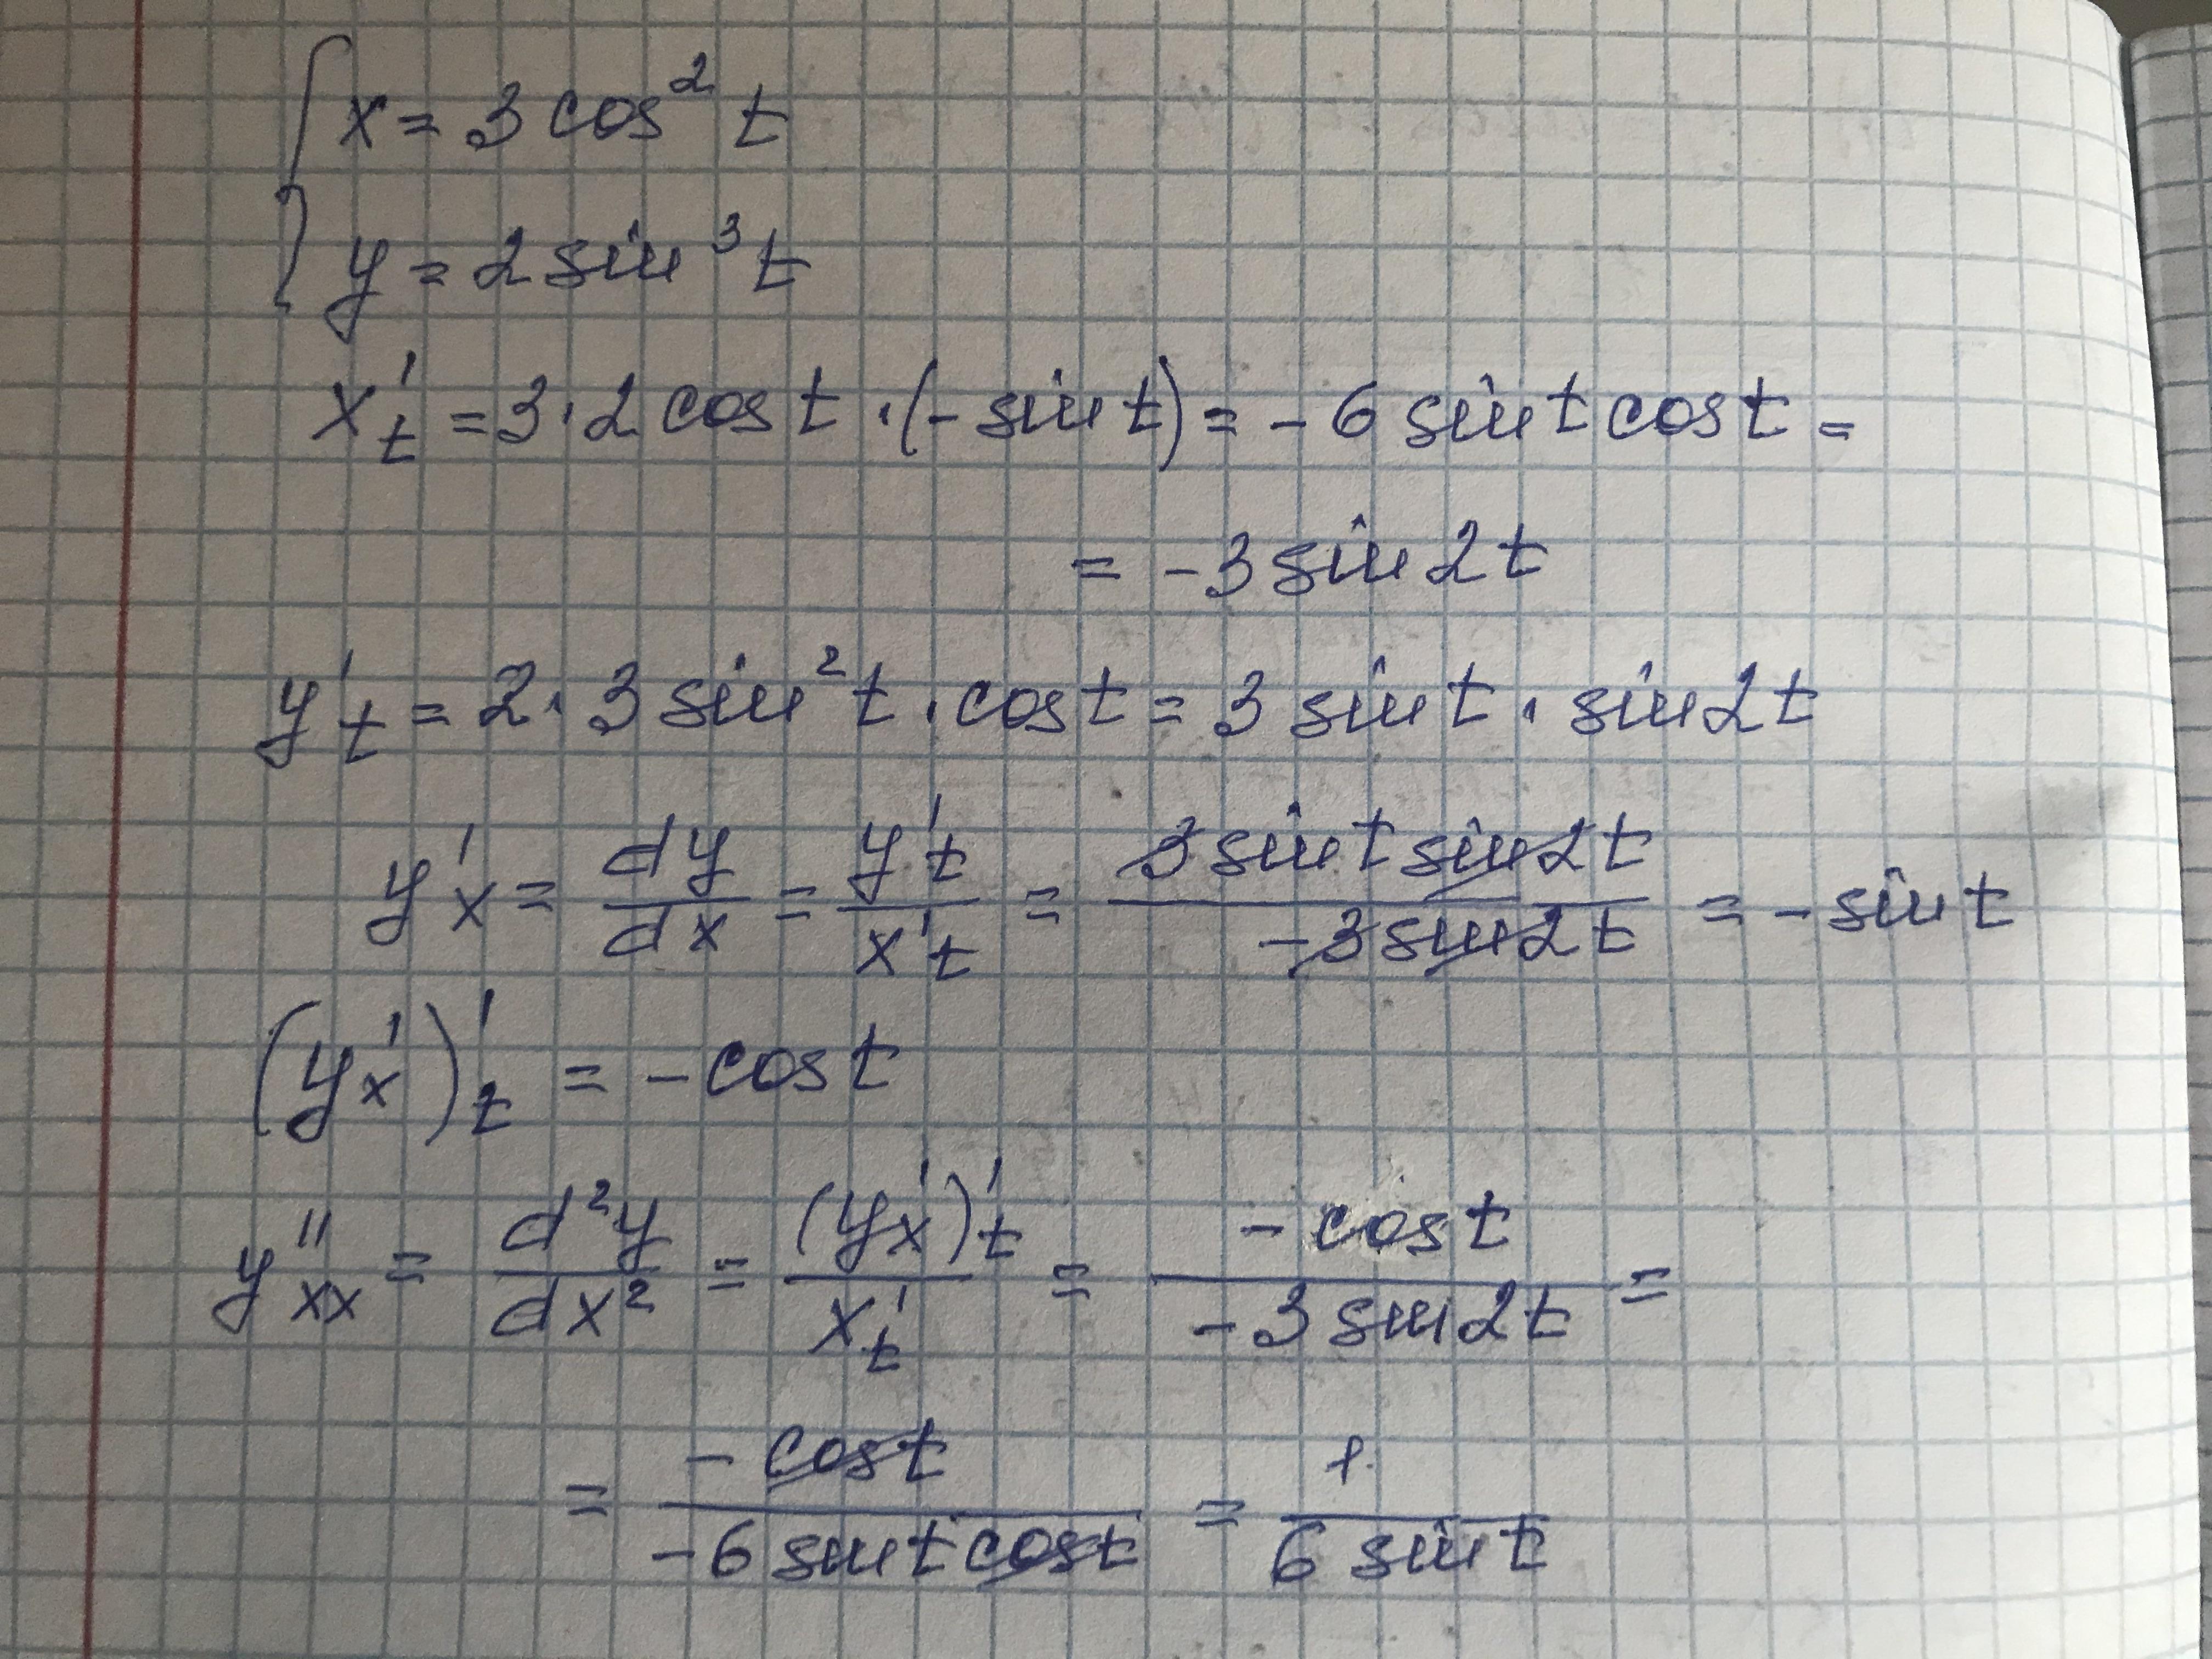 { x = 3 cos² t
y = 2 sin³ t
x't = 3 · 2 cos t · (- sin t) = - 6 sin t cos t =
= - 3 sin 2t
y't = 2 · 3 sin² t · cos t = 3 sin t · sin 2t
y'x = dy/dx = y't/x't = 3 sin t sin 2t / - 3 sin 2t = - sin t
(y'x)'t = - cos t
y''xx = d²y/dx² = (y'x)'t / x't = - cos t / - 3 sin 2t =
= - cos t / - 6 sin t cos t = 1 / 6 sin t